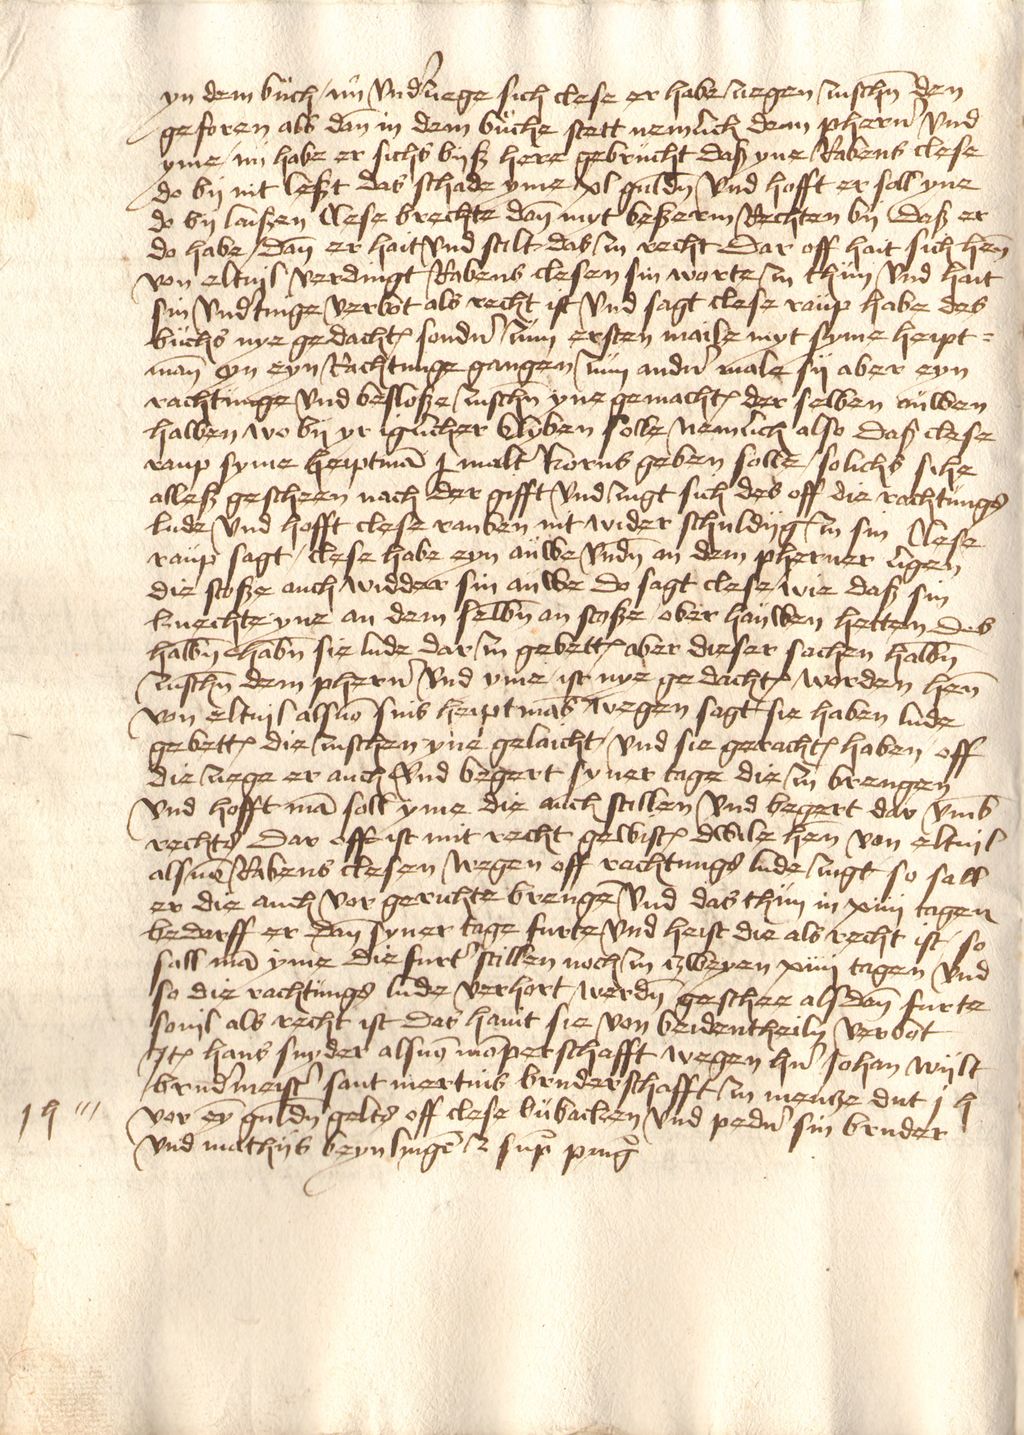 yn dem buch / nu und zuege sich clese er habe zuegen zuschn den
geforen als dan in dem buche stett nemlich dem phern und
yme / nu habe er sichs byß here gebrucht daß yne Rabens clese
do by nit leßt das schade yme xl guldn und hofft er soll yne
do by laißen Clese brechte dan myt beßerm Rechten by daß er
do habe / dan er hait und stilt das zu recht Dar off hait sich hen
von eltuil verdingt Rabens clesen sin worte zu thun und hait
sin undtinge verbot als recht ist und sagt clese raup habe des
buchs nye gedacht sonder zum ersten maile myt syme heipt=
man yn eyn Rachtunge gangen / zum ander male sy aber eyn
rachtunge und besloße zuschn yne gemacht der selben auwen
halben wo by yr iglicher blyben solle / nemlich also daß clese
raup syme heiptman j malt korns geben solle / solichs sihe
alleß gescheen nach der gifft und zugt sich des off die rachtungs
lude und hofft clese rauben nit wider schuldig zu sin Clese
raup sagt / clese habe eyn auwe undn an dem pherner ligen
die stoße auch widder sin auwe do sagt clese / wie daß sin
knechte yne an dem selbn an stoße / ober hauwen hetten Des
halbn habn sie lude dar zu gebett aber dieser sachen halbn
zuschn dem phern und yme ist nye gedacht worden hen
von eltuil alsuo sins heiptmas wegen sagt sie haben lude
gebett die zuschen yne gelaicht und sie geracht haben / off
die zuege er auch und begert syner tage die zu brengen
und hofft ma soll yme die auch stillen und begert dar umb
rechts Dar off ist mit recht gewist dwile hen von eltuil
alsuo Rabens clesen wegen off rachtungs lude zugt so sall
er die auch vor gerichte brenge und das thun in xiiij tagen
bedarff er dan syner tage furte und heist die als recht ist / so
sall ma yme die furt stillen noch zu zweyen xiiij tagen und
so die rachtungs lude verhort werdn geschee als dan furte
souil als recht ist Das haint sie von beidentheiln verbot
Jt hans snyder alsuo moperschafft wegen hr johan wylt
bruder meist sant mertins bruderschafft zu mencze dut j h
1 h iii
vor ey guldn gelts off clese lubacken und peder sin bruder
und mathijs beynlinge z sup png